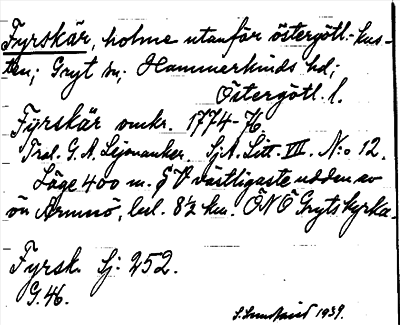 Fyrskär, holme utanför östergötl.-kus-
ten; Gryt sn; Hammarkinds hd;
Östergötl. l.
Fyrskär omkr. 1774-76.
G. A. Lejonanker. SjA. Litt. VII. N:o 12.
Läge 400 m. SV västligaste udden av
ön Ämmö, bel. 8½ km. ÖNÖ Gryts kyrka.
Fyrsk. Sj: 252.
G. 46.
1939.